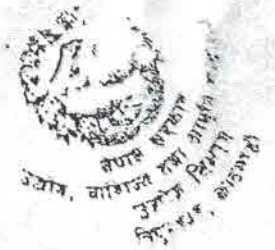 नेपाल सरकार
उद्योग, वाणिज्य तथा आपूर्ति
उद्योग विभाग
त्रिपुरेश्वर, काठमाडौं